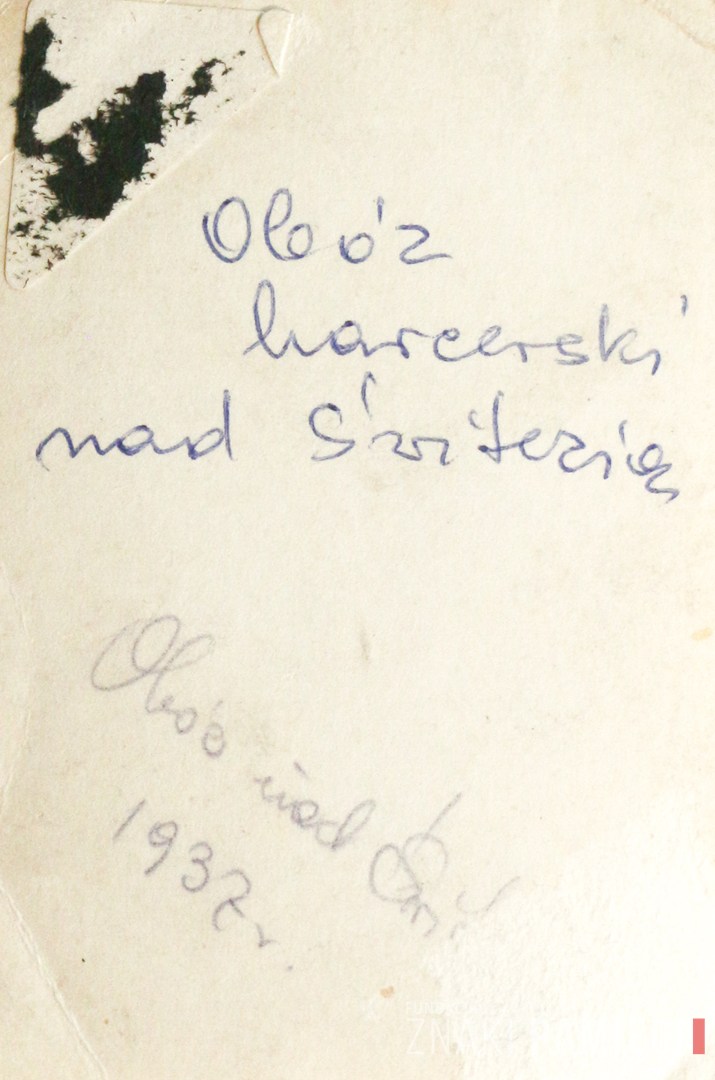 Obóz
harcerski
nad Świtezią
Obóz nad
1937 r.